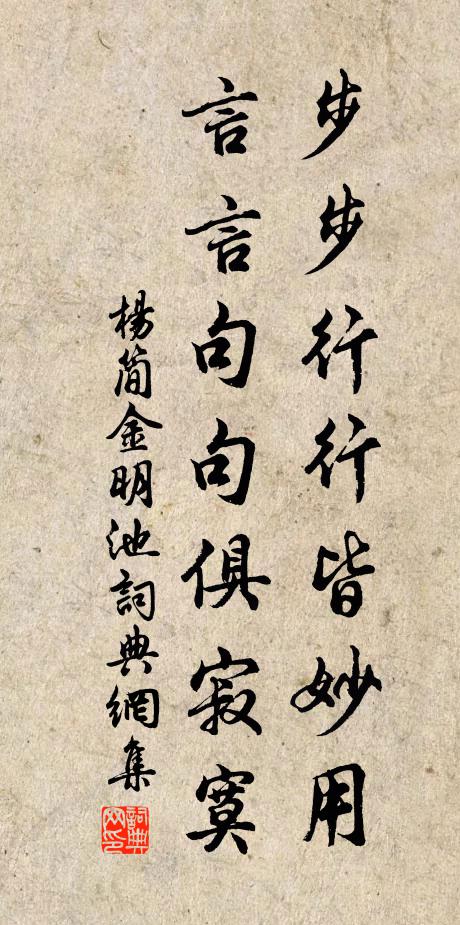 步步行行皆妙用
言言句句俱寂寞
楊简金明池詞典網集
詞典網印